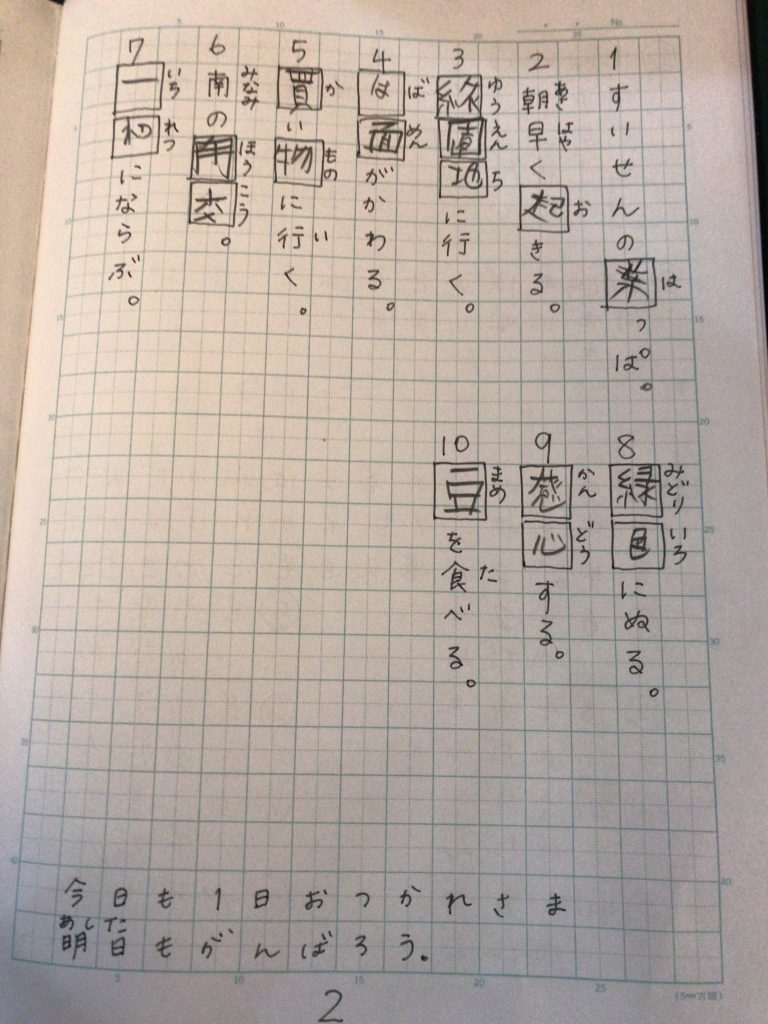 1 すいせんの っぱ。
は
2 朝早く起きる。
あさ はや お
3 園地に行く。
ゆう えん ち
4 は面がかわる。
ば めん
5 買い物に行く。
か もの い
6 南の 。
みなみ ほう こう
7 一 にならぶ。
いち れつ
8 緑目にぬる。
みどり いろ
9 心する。
かん どう
10 豆を食べる。
まめ た
今日も1日おつかれさま
あした
明日もがんばろう。
2
No.
(5mm方眼)